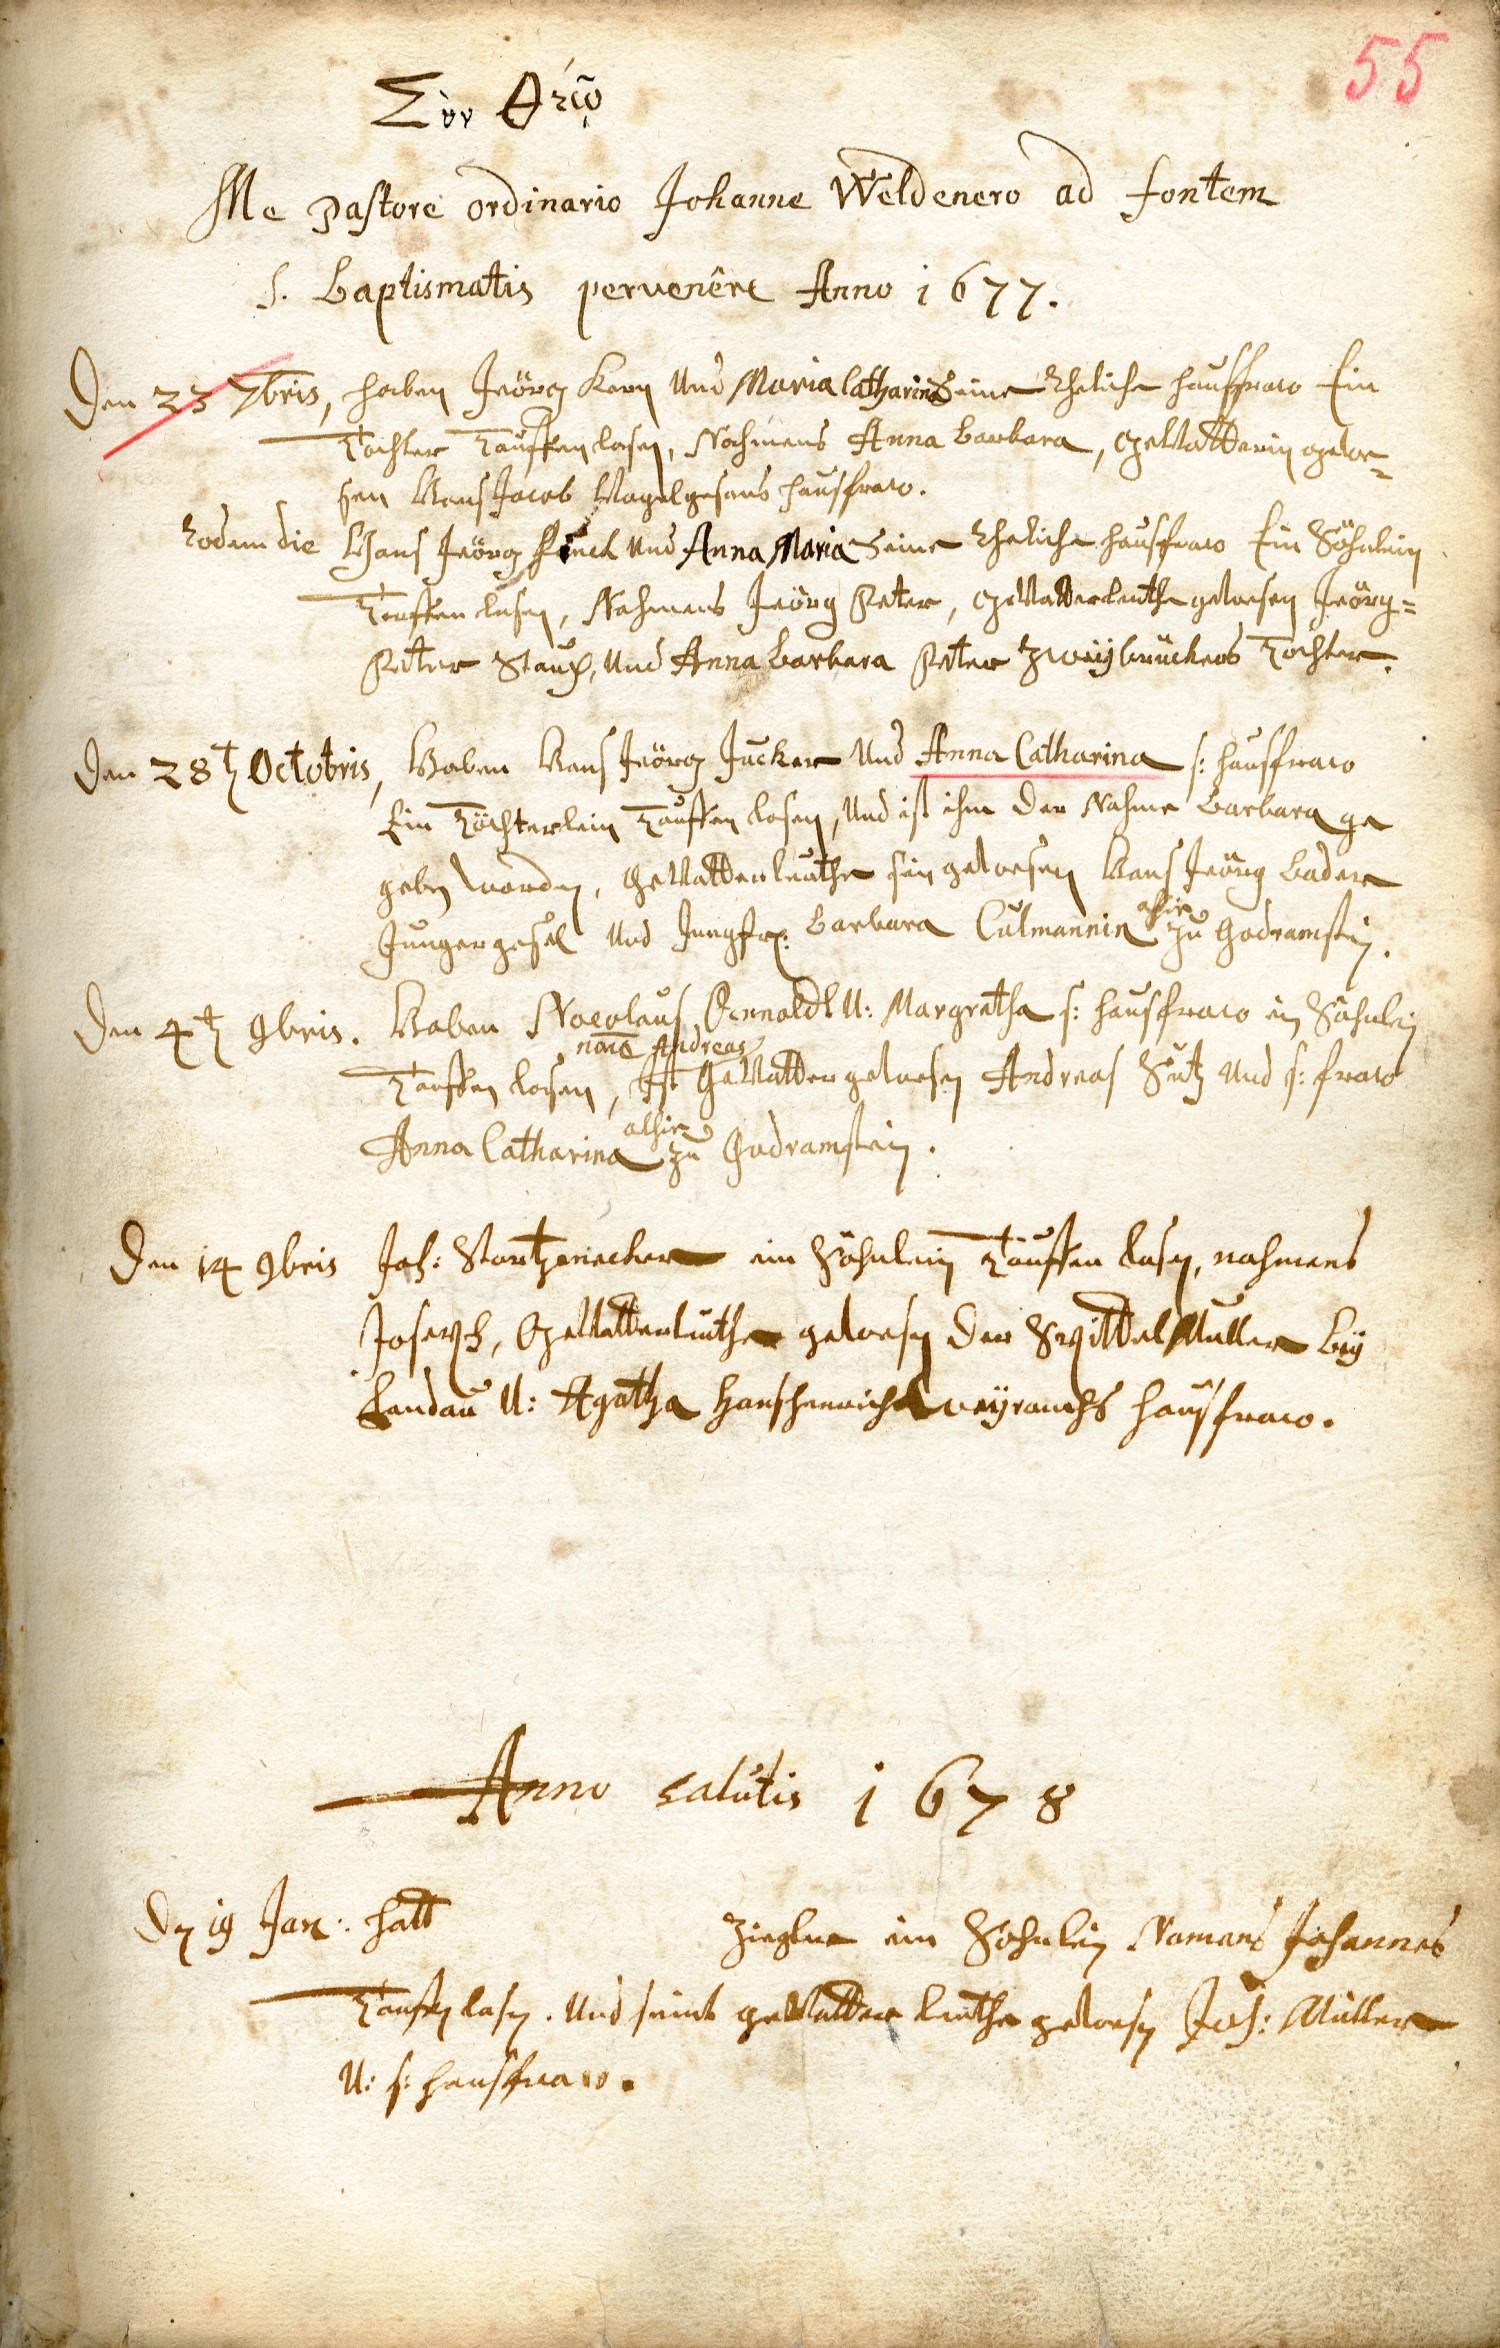 55
Σὺν Θεῷ
Me Pastore ordinario Johanne Weldenero ad fontem
S. Baptismatis pervenêre Anno 1677.
Den 23 7bris, haben Jeörg Kern Und Maria Catharina Seine Eheliche haussfraw Ein
Tochter Tauffen lasen, Nahmens Anna Barbara, GeVatterin gewe-
sen Hans Jacob Vogelgesans haussfraw.
Eodem die Hans Jeörg Und Anna Maria Seine Eheliche haussfraw Ein Söhnlein
Tauffen lasen, Nahmens Jeörg Peter, GeVatterleuthe gewesen Jeörg=
Peter Staup, Und Anna Barbara Peter Zweybrückers Tochter.
Den 28t Octobris, Haben Hans Jeörg Jucker Und Anna Catharina s: haussfraw
Ein Töchterlein Tauffen lasen, Und ist ihm Der Nahme Barbara ge
geben worden, GeVatterleuthe sin gewesen Hans Jeörg Bader
Jungergesel Und Jungfr: Barbara Culmannin alhie zu Godramstein.
Den 4t 9bris. Haben Nocolaus Arnnoldt U: Margretha s: haussfraw ein Söhnlein
nōie Andreas
Tauffen lasen, Ist GeVatter gewesen Andreas Sutz Und s: fraw
Anna Catharina alhie zu Godramstein.
Den 14 9bris Joh: Stortzenecker ein Söhnlein Tauffen lasen, nahmens
Joseph, GeVatterleuthe gewesen Der Spittel Müller bey
Landau U: Agatha Hanshenrich Weyrauchs haussfraw.
Anno salutis 1678
Den 19 Jan: hatt Ziegler ein Söhnlein Namens Johannes
Tauffen lasen. Und seint geVatter leuthe gewesen Joh: Müller
U: s: haussfraw.